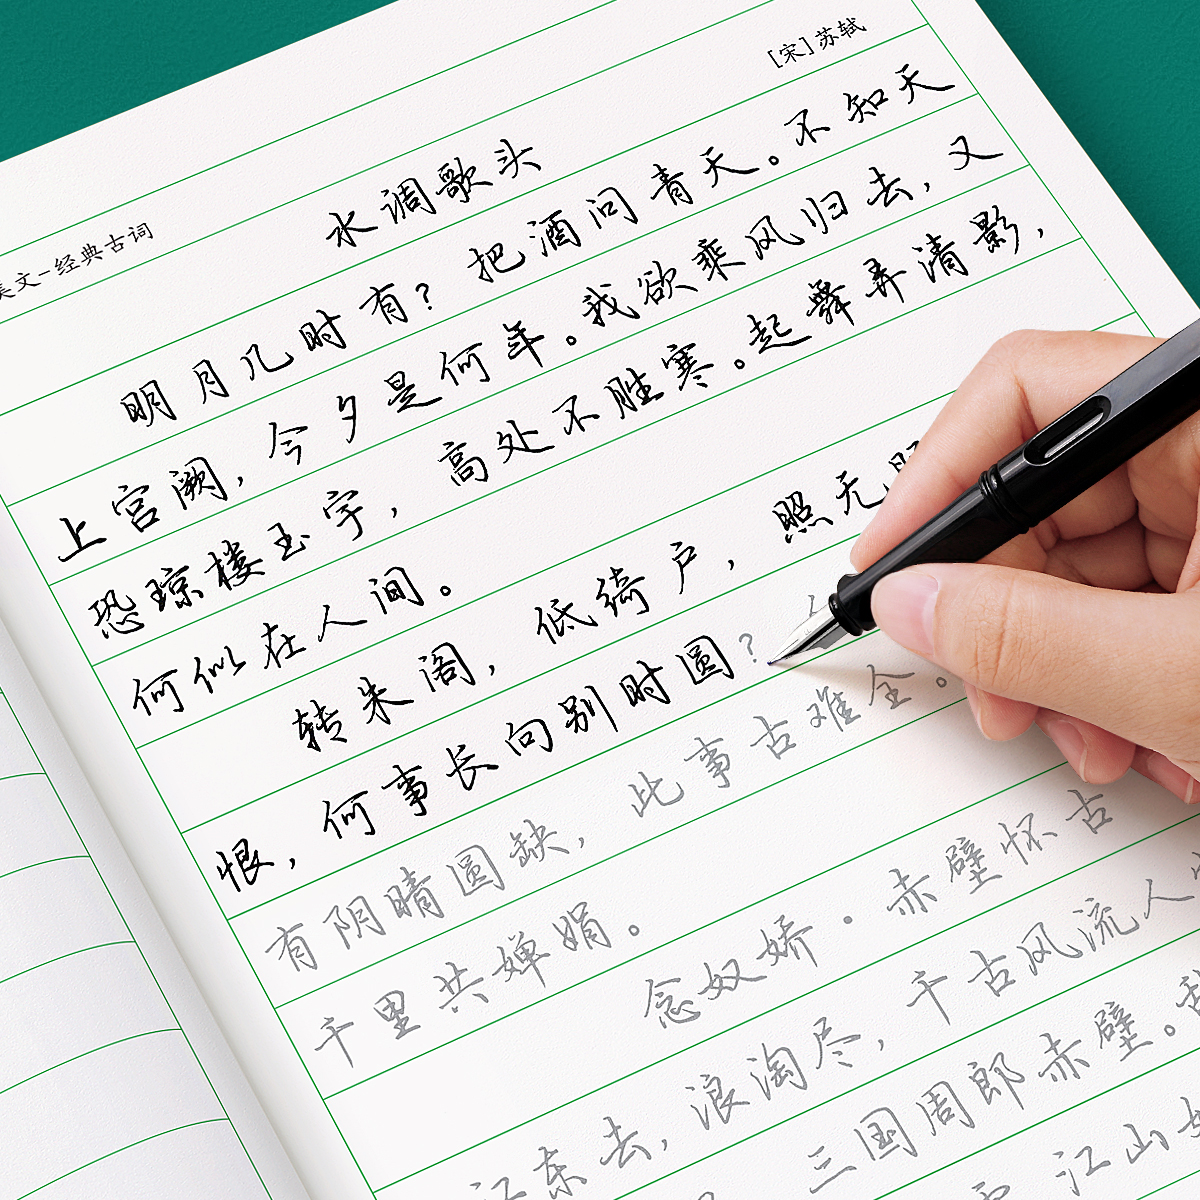 [宋]苏轼
美文-经典古词
水调歌头
明月几时有?把酒问青天。不知天
上宫阙,今夕是何年。我欲乘风归去,又
恐琼楼玉宇,高处不胜寒。起舞弄清影,
何似在人间。
转朱阁,低绮户,照无眠
恨,何事长向别时圆?
有阴晴圆缺,此事古难全。
千里共婵娟。
念奴娇·赤壁怀古
江东去,浪淘尽,千古风流人
三国周郎赤壁。
江山如